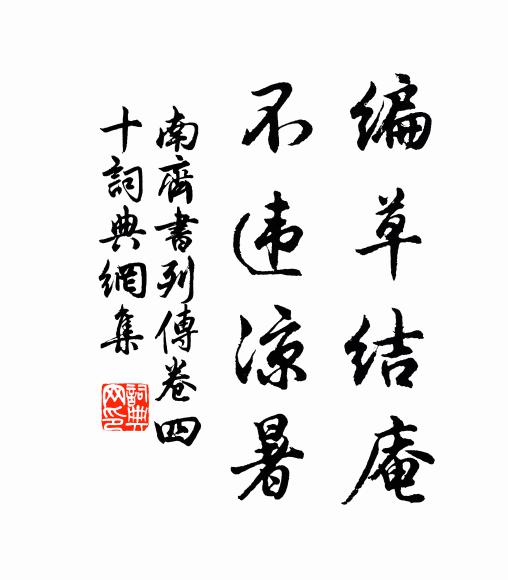 编草结庵
不违凉暑
南齊書列傳卷四
十詞典網集
詞典
网印